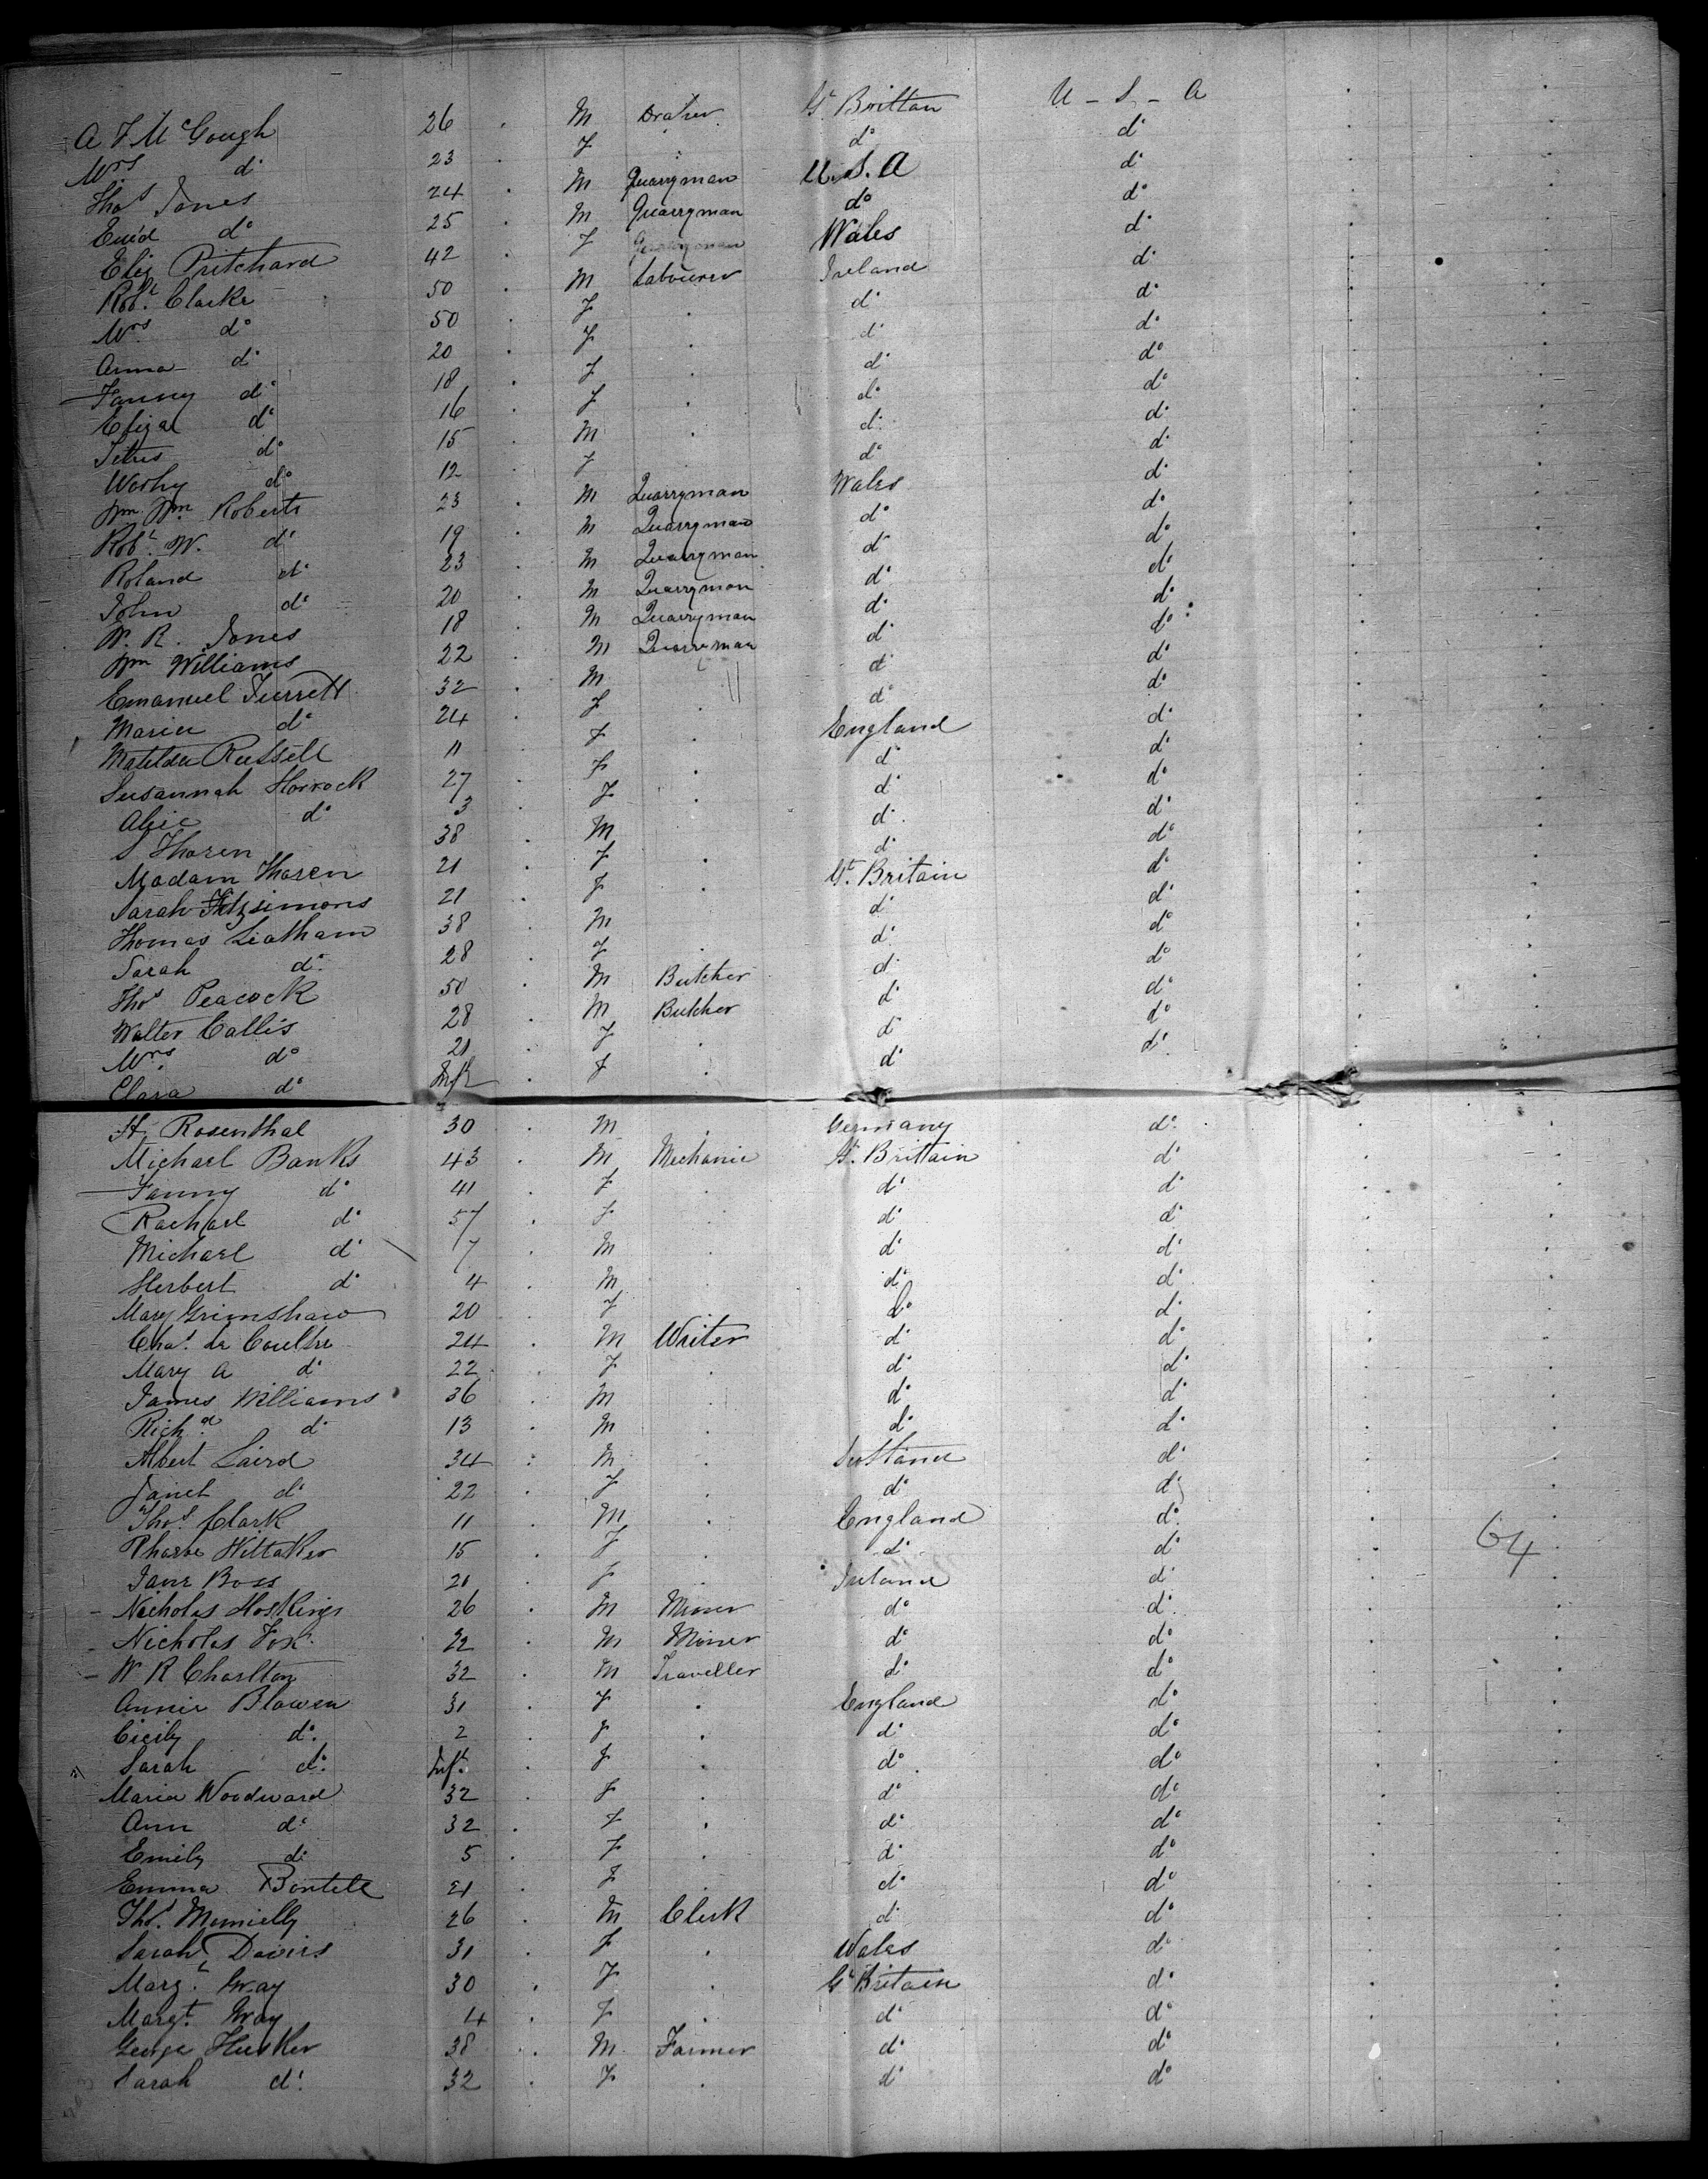 A F McGough 26 M Draper Gt. Brittan U - S - A
Mrs do 23 F do do
Thos Jones 24 M Quarryman U.S.A do
Enid do 25 M Quarryman do do
Eliz Pritchard 42 F Quarryman Wales do
Robt. Clarke 50 M Labourer Ireland do
Mrs do 50 F do do
Anna do 20 F do do
Fanny do 18 F do do
Eliza do 16 F do do
Titus do 15 M do do
Worthy do 12 F do do
Wm Wm. Roberts 23 M Quarryman Wales do
Robt. W. do 19 M Quarryman do do
Roland do 23 M Quarryman do do
John do 20 M Quarryman do do
W. R. Jones 18 M Quarryman do do
Wm Williams 22 M Quarryman do do
Emanuel 32 M do do
Maria do 24 F do do
Matilda Russell 11 F England do
Susannah Horrock 27 F do do
Alice do 3 F do do
S Thosen 38 M do do
Madam Thosen 21 F do do
Sarah Fitzsimons 21 F Gt. Britain do
Thomas Leatham 38 M do do
Sarah do 28 F do do
Thos Peacock 50 M Butcher do do
Walter Callis 28 M Butcher do do
Mrs. do 21 F do do
Clara do Inft F do do
H. Rosenthal 30 M Germany do
Michael Banks 43 M Mechanic Gt. Brittain do
Fanny do 41 F do do
Rachael do 57 F do do
Michael do 7 M do do
Herbert do 4 M do do
Mary Grimshaw 20 F do do
Chas. de Coultre 24 M Writer do do
Mary A do 22 F do do
James Williams 36 M do do
Richd. do 13 M do do
Albert Laird 34 M do
Janet do 22 F do do
Thos. Clark 11 M England do
Phoebe Wittaker 15 F do do
Jane Boss 21 F Ireland do
Nicholas Hoskings 26 M Miner do do
Nicholas Fox 22 M Miner do do
W R Charlton 32 M Traveller do do
Annie Blowen 31 F England do
Cicily do. 2 F do do
Sarah do. Inft. F do do
Maria Woodward 32 F do do
Ann do 32 F do do
Emily do 5 F do do
Emma Bontell 21 F do do
Thos. 26 M Clerk do do
Sarah Davis 31 F Wales do
Margt. Gray 30 F Gt Britain do
Margt. Gray 4 F do do
George Husker 38 M Farmer do do
Sarah do. 32 F do do
64